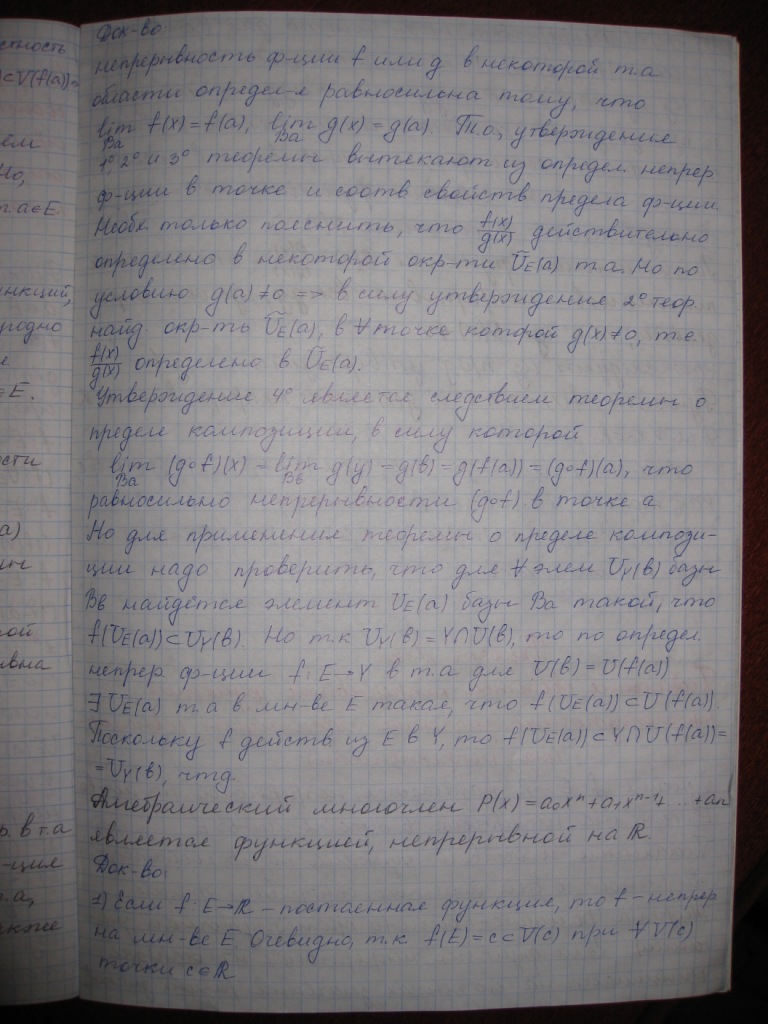 стность
)⊂V(f(a))
ём
но,
т. a∈E.
нкций,
угодно
е
∈E.
сти
а)
ин
рой
вна
р. в т.а
-ция
.а,
акже
Док-во
непрерывность ф-ции f или g в некоторой т.a
области определ-я равносильна тому, что
lim f(x)=f(a), lim g(x)=g(a). Т.о, утверждения
Ba Ba
1°, 2° и 3° теоремы вытекают из определ. непрер
ф-ции в точке и соотв свойств предела ф-ции.
Необх. только пояснить, что f(x)/g(x) действительно
определено в некоторой окр-ти U_E(a) т a. Но по
условию g(a)≠0 => в силу утверждения 2° теор.
найд. окр-ть U_E(a), в ∀ точке которой g(x)≠0, т.е.
f(x)/g(x) определено в U_E(a).
Утверждение 4° является следствием теоремы о
пределе композиции, в силу которой
lim (g∘f)(x) = lim g(y) = g(b) = g(f(a)) = (g∘f)(a), что
Ba Bb
равносильно непрерывности (g∘f) в точке a
Но для применения теоремы о пределе компози-
ции надо проверить, что для ∀ элем U_Y(b) базы
Bb найдётся элемент U_E(a) базы Ba такой, что
f(U_E(a))⊂U_Y(b). Но т.к U_Y(b)=Y∩U(b), то по определ.
непрер. ф-ции f: E→Y в т.a для U(b)=U(f(a))
∃ U_E(a) т.a в мн-ве E такая, что f(U_E(a))⊂U(f(a)).
Поскольку f действ из E в Y, то f(U_E(a))⊂Y∩U(f(a))=
=U_Y(b), чтд.
Алгебраический многочлен P(x)=a₀xⁿ+a₁xⁿ⁻¹+...+aₙ
является функцией, непрерывной на ℝ.
Док-во:
1) Если f: E→ℝ – постоянная функция, то f – непрер
на мн-ве E. Очевидно, т.к f(E)=c⊂V(c) при ∀ V(c)
точки c∈ℝ